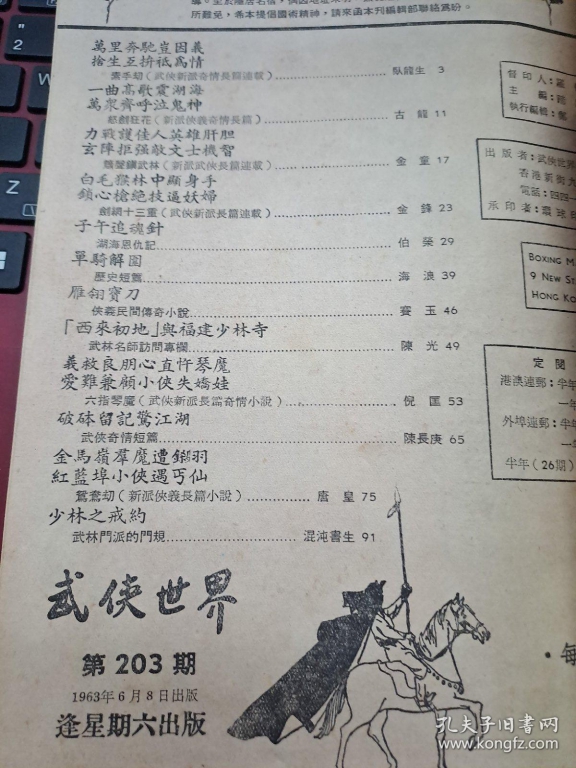 所難免，希本提倡國術精神，請來函本刊編輯部聯絡為紛。
萬里奔馳豈因義
捨生互拚祗為情
素手劫（武俠新派奇情長篇連載） 臥龍生 3
一曲高歌震湖海
萬眾齊呼泣鬼神
怒劍狂花（新派俠義奇情長篇） 古龍 11
力戰護佳人英雄肝胆
玄陣拒强敵文士機智
（新派武俠長篇連載） 金童 17
白毛猴林中顯身手
鎖心槍絶技逼妖婦
劍網十三重（武俠新派長篇連載） 金鋒 23
子午追魂針
湖海恩仇記 伯榮 29
單騎解圍
歷史短篇 海浪 39
雁翎寶刀
俠義民間傳奇小說 賽玉 46
「西來初地」與福建少林寺
武林名師訪問專欄 陳光 49
義救良朋心直忤琴魔
愛難兼顧小俠失嬌娃
六指琴魔（武俠新派長篇奇情小說） 倪匡 53
破砵留記驚江湖
武俠奇情短篇 陳長庚 65
金馬嶺羣魔遭鎩羽
紅藍埠小俠遇丐仙
鴛鴦劫（新派俠義長篇小說） 唐皇 75
少林之戒約
武林門派的門規 混沌書生 91
武俠世界
第203期
1963年6月8日出版
逢星期六出版
督印人：羅
主編：
執行編輯：鄭
出版者：武俠世界
香港新街
電話：四四
承印者：環球
BOXING M
9 NEW S
HONG KO
定閱
港澳連郵：半年
一年
外埠連郵：半年
一年
半年（26期）
每
2
W
S
Z
孔夫子旧书网
www.kongfz.com